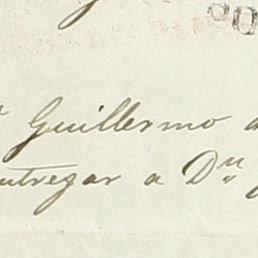 Guillermo
entregar a Dn